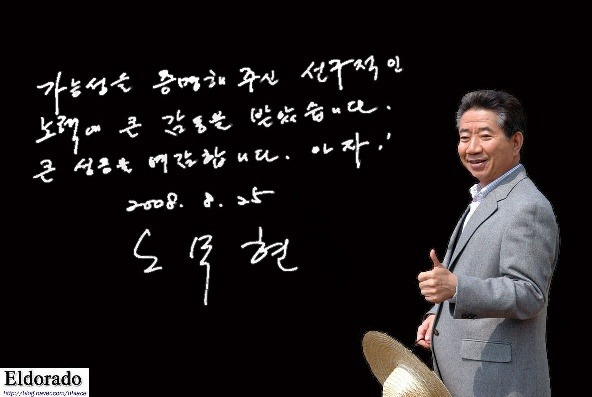 가능성을 증명해 주신 선구적인
노력에 큰 감동을 받았습니다.
큰 성공을 예감합니다. 아자!
2008. 8. 25
노무현
Eldorado